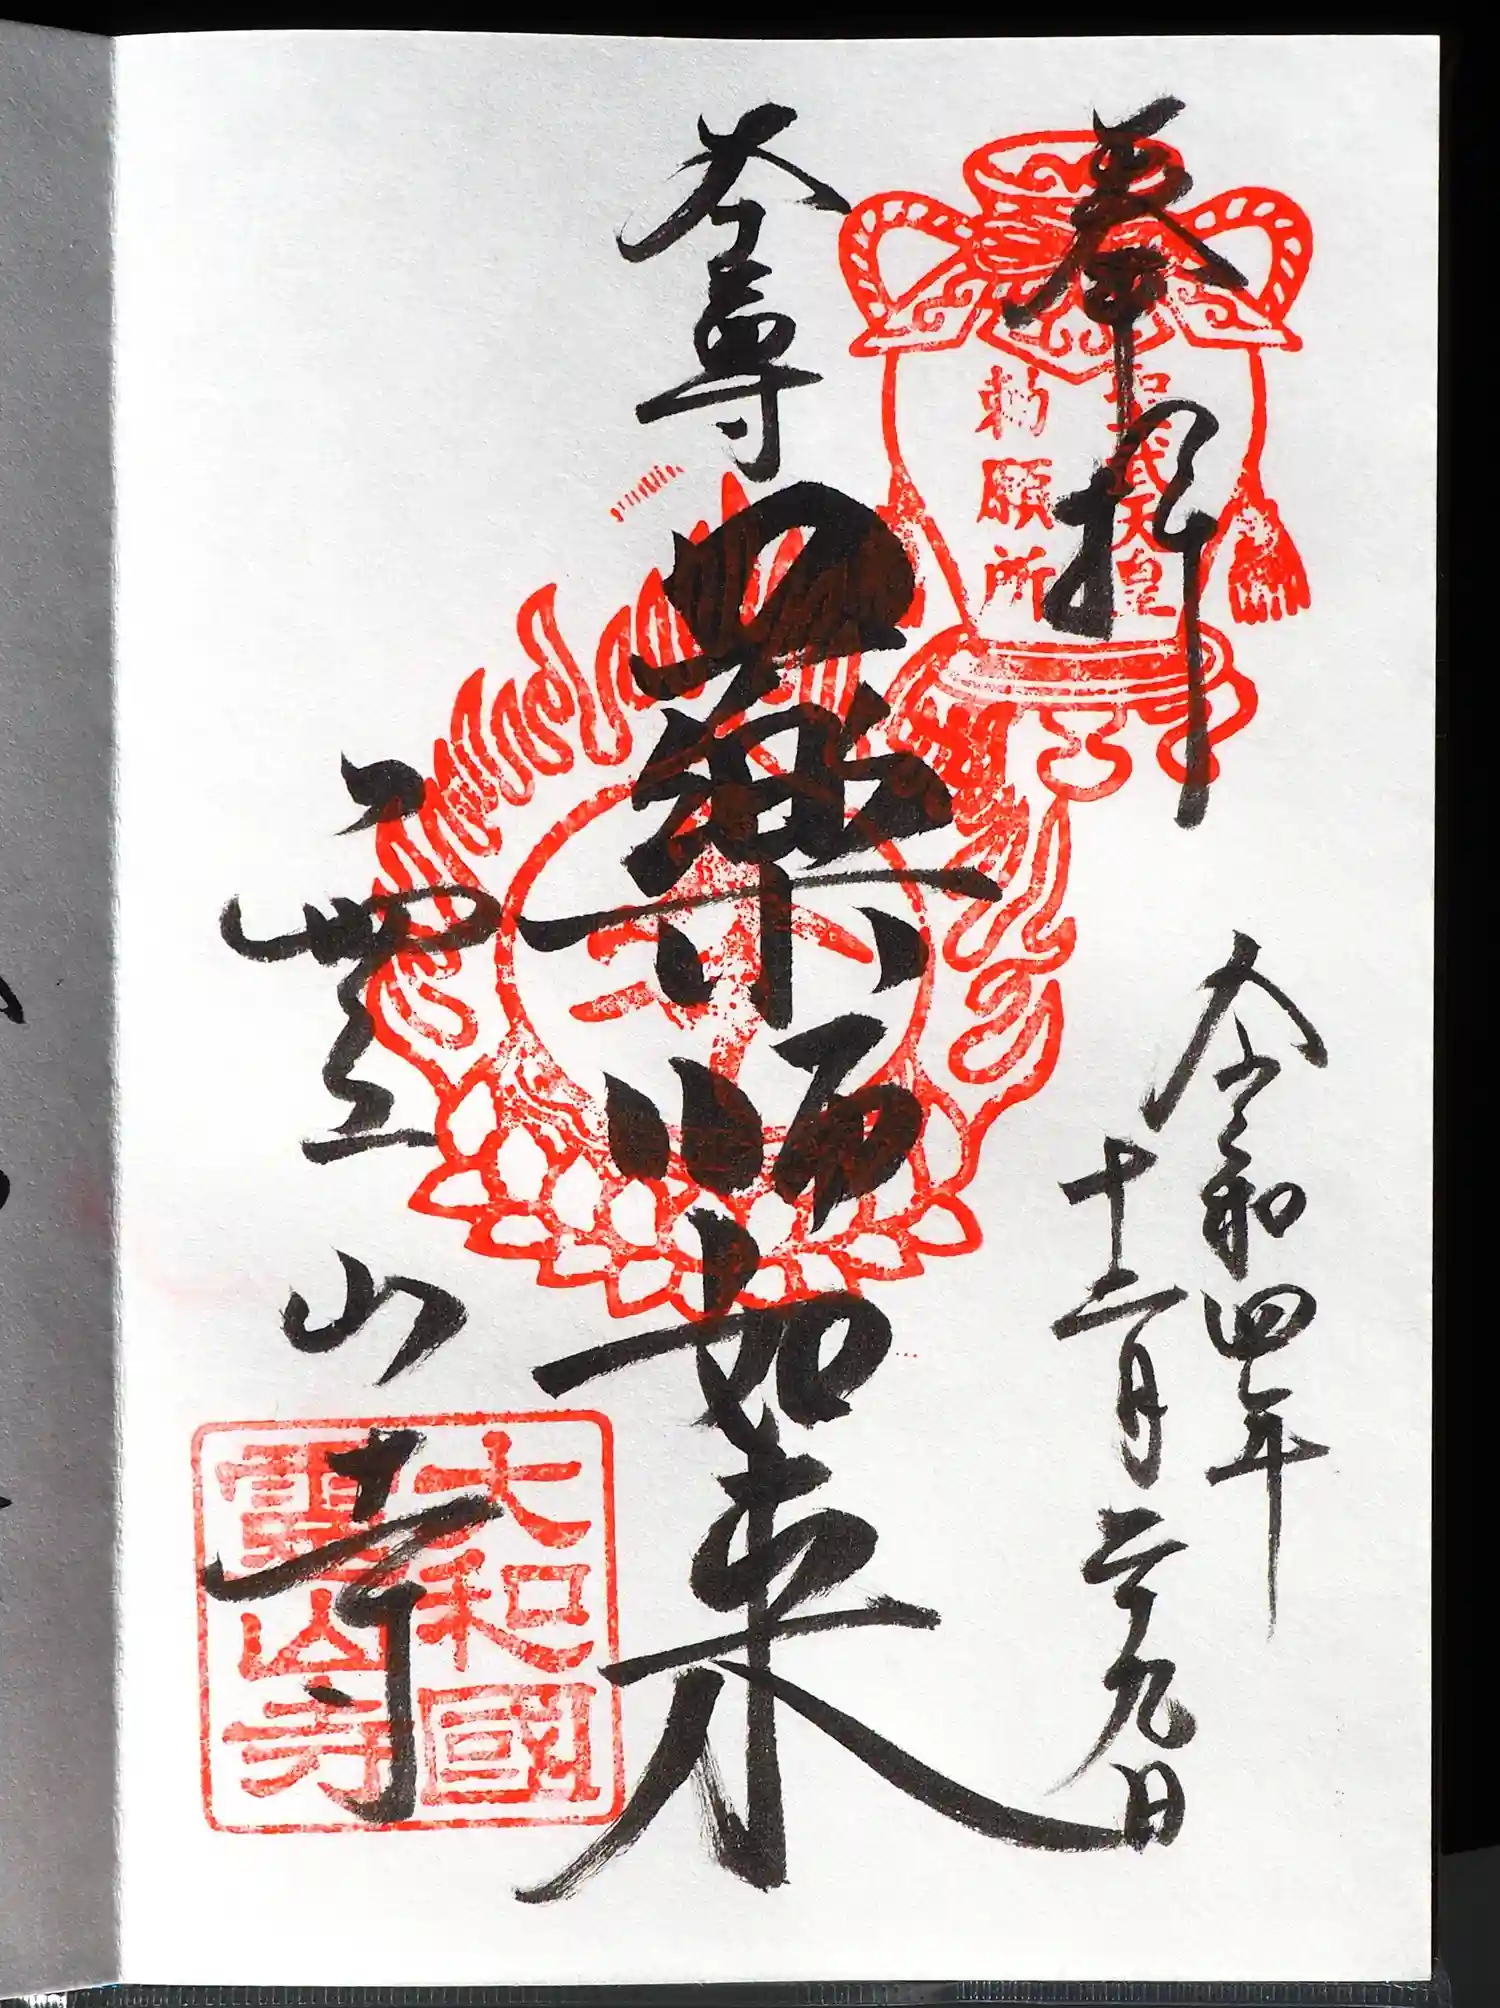 奉拝
聖武天皇
勅願所
令和四年
十二月二十九日
本尊
藥師如来
霊山寺
大和國
靈山寺